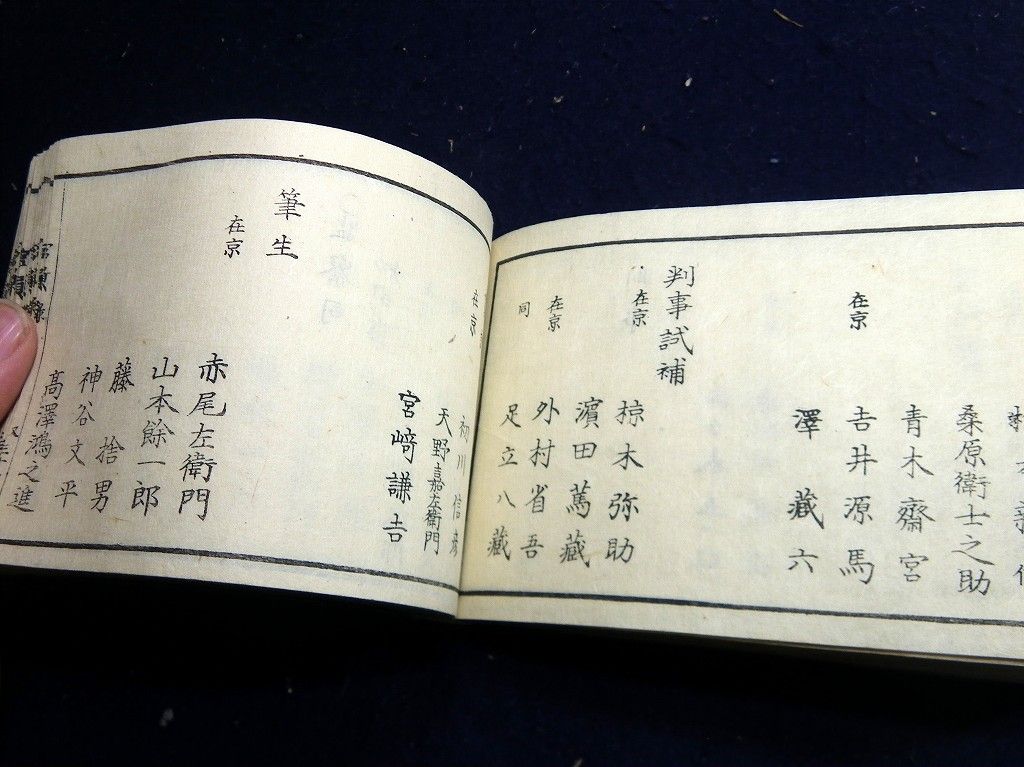 桑原衛士之助
青木齋宮
吉井源馬
在京
澤藏六
判事試補
在京
椋木弥助
濱田萬藏
在京
外村省吾
同
足立八藏
在京
初川信彦
天野嘉左衛門
宮﨑謙吉
筆生
在京
赤尾左衛門
山本餘一郎
藤捨男
神谷文平
高澤鴻之進
官員録